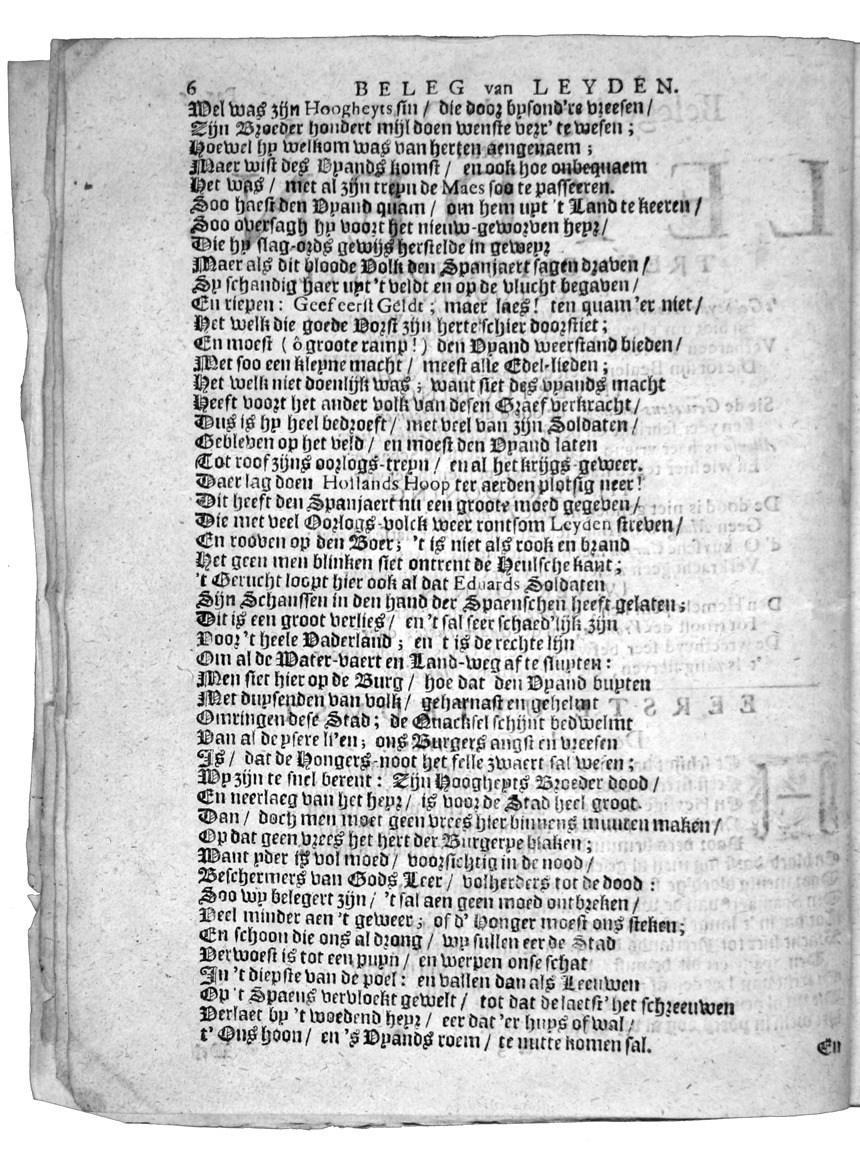 6 BELEG van LEYDEN.
Wel was zijn Hoogheyts sin / die door bysond're vreesen /
Zijn Broeder hondert mijl doen wenste verr' te wesen ;
Hoewel hy welkom was van herten aengenaem ;
Maer wist des Vyands komst / en ook hoe onbequaem
Het was / met al zijn treyn de Maes soo te passeeren.
Soo haest den Vyand quam / om hem uyt 't Land te keeren /
Soo oversagh hy voort het nieuw-geworven heyr /
Die hy slag-ords gewijs herstelde in geweyr
Maer als dit bloode Volk den Spanjaert sagen draven /
Sy schandig haer uyt 't veldt en op de vlucht begaven /
En riepen : Geef eerst Geldt ; maer laes ! ten quam 'er niet /
Het welk die goede Vorst zijn herte schier doorstiet ;
En moest ( ô groote ramp ! ) den Vyand weerstand bieden /
Met soo een kleyne macht / meest alle Edel-lieden ;
Het welk niet doenlijk was ; want siet des vyands macht
Heeft voort het ander volk van desen Graef verkracht /
Dus is hy heel bedroeft / met veel van zijn Soldaten /
Gebleven op het veld / en moest den Vyand laten
Tot roof zijns oorlogs-treyn / en al het krijgs-geweer.
Daer lag doen Hollands Hoop ter aerden plotsig neer !
Dit heeft den Spanjaert nu een groote moed gegeven /
Die met veel Oorlogs-volck weer rontsom Leyden streven /
En rooven op den Boer ; 't is niet als rook en brand
Het geen men blinken siet ontrent de Heulsche kant ;
't Gerucht loopt hier ook al dat Eduards Soldaten
Sijn Schanssen in den hand der Spaenschen heeft gelaten ;
Dit is een groot verlies / en 't sal seer schaed'lijk zijn
Voor 't heele Vaderland ; en t is de rechte lijn
Om al de Water-vaert en Land-weg af te sluyten :
Men siet hier op de Burg / hoe dat den Vyand buyten
Met duysenden van volk / geharnast en gehelmt
Omringen dese Stad ; de Quacksel schijnt bedwelmt
Van al de ysere li'en ; ons Burgers angst en vreesen
Is / dat de Hongers-noot het felle zwaert sal wesen ;
Wy zijn te snel berent : Zijn Hooghheyts Broeder dood /
En neerlaeg van het heyr / is voor de Stad heel groot.
Dan / doch men moet geen vrees hier binnens muuren maken /
Op dat geen vrees het hert der Burgerye blaken ;
Want yder is vol moed / voorsichtig in de nood /
Beschermers van Gods Leer / volherders tot de dood :
Soo wy belegert zijn / 't sal aen geen moed ontbreken /
Veel minder aen 't geweer ; of d' Honger moest ons steken ;
En schoon die ons al drong / wy sullen eer de Stad
Verwoest is tot een puyn / en werpen onse schat
In 't diepste van de poel : en vallen dan als Leeuwen
Op 't Spaens vervloekt gewelt / tot dat de laetst' het schreeuwen
Verlaet by 't woedend heyr / eer dat 'er huys of wal /
t' Ons hoon / en 's Vyands roem / te nutte komen sal.
En